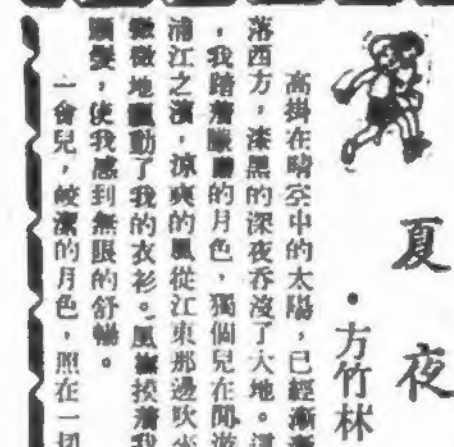 夏夜
•方竹林
高掛在晴空中的太陽，已經漸
落西方，漆黑的深夜吞沒了大地。這
，我踏着朦朧的月色，獨個兒在閒遊
浦江之濱，涼爽的風從江東那邊吹來
微微地飄動了我的衣衫。風
，使我感到無限的舒暢。
一會兒，皎潔的月色，照在一切